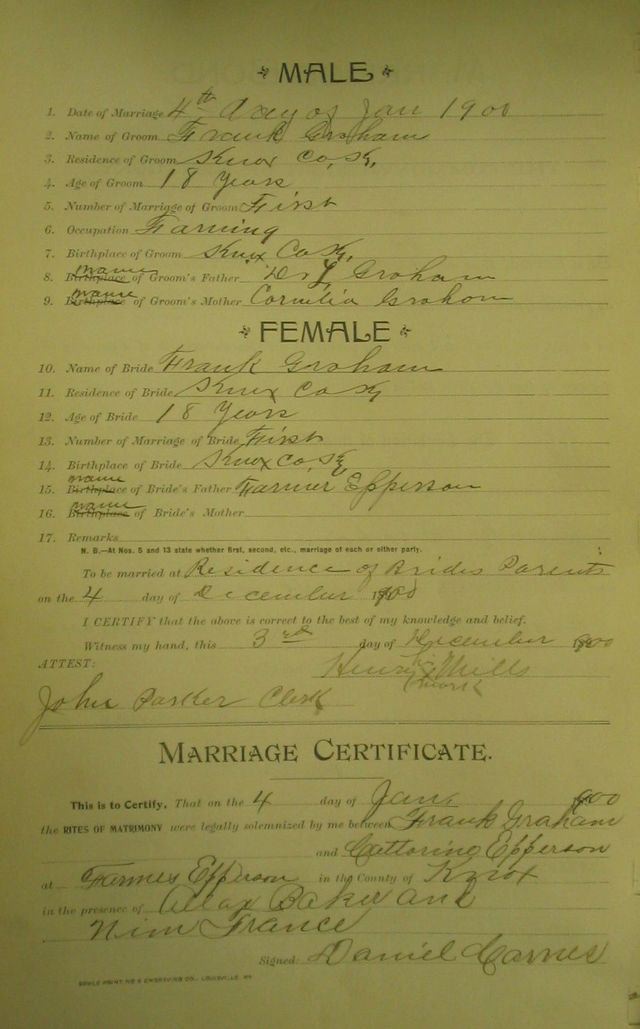 MALE
1. Date of Marriage 4th day of Jan 1900
2. Name of Groom Frank Graham
3. Residence of Groom Knox Co, Ky,
4. Age of Groom 18 Years
5. Number of Marriage of Groom First
6. Occupation Farming
7. Birthplace of Groom Knox Co Ky,
name
8. Birthplace of Groom's Father Graham
name
9. Birthplace of Groom's Mother Cornelia Graham
FEMALE
10. Name of Bride Frank Graham
11. Residence of Bride Knox Co Ky
12. Age of Bride 18 Years
13. Number of Marriage of Bride First
14. Birthplace of Bride Knox Co, Ky
name
15. Birthplace of Bride's Father Farmer Epperson
name
16. Birthplace of Bride's Mother
17. Remarks
N. B.—At Nos. 5 and 13 state whether first, second, etc., marriage of each or either party.
To be married at Residence of Brides Parents
on the 4 day of December 1900
I CERTIFY that the above is correct to the best of my knowledge and belief.
Witness my hand, this 3rd day of December 1900
ATTEST:
Henry Mills
John Parker Clerk
MARRIAGE CERTIFICATE.
This is to Certify, That on the 4 day of Jan, 1900
the RITES OF MATRIMONY were legally solemnized by me between Frank Graham
and Epperson
at Farmes Epperson in the County of Knox
in the presence of Baker and
Nim France
Signed: Daniel Carnes